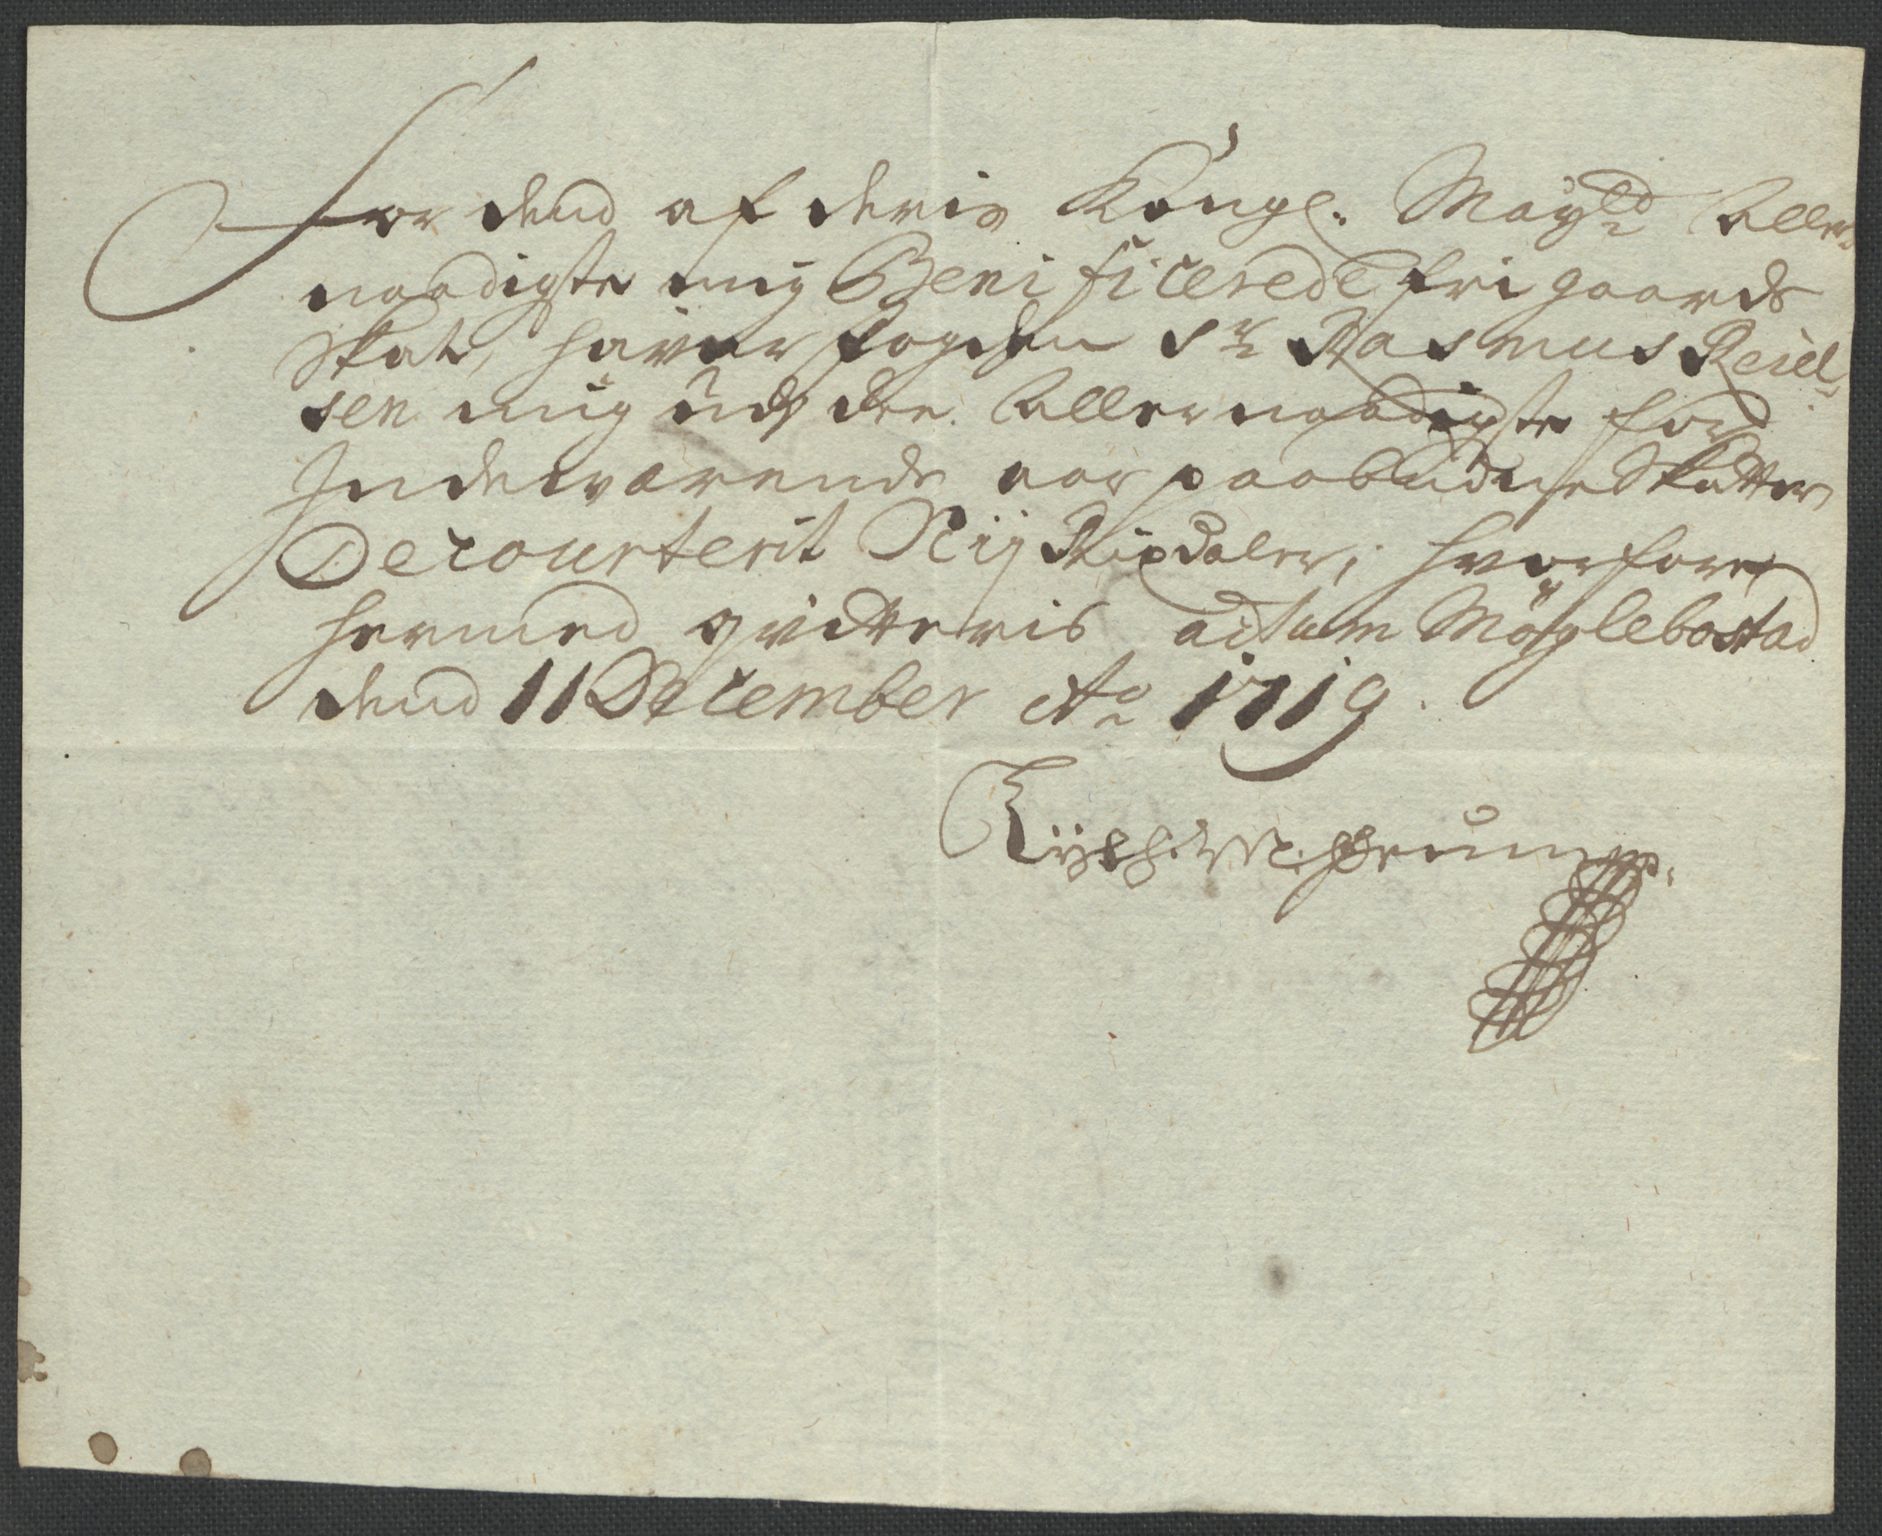 For dend af deris Kongl: Mayꝭᵗᵈ Aller
naadigste mig Benificerede fri gaards
Skat, haver fogden Sr Rasmus Reiel
sen mig udj de Allernaadigste for
Indeværende aar paabudne Skatter
Decourterit Rixdaler, hvorfore
hermed qvitteris actum Möglebostad
dend 11 December Ao 1719.